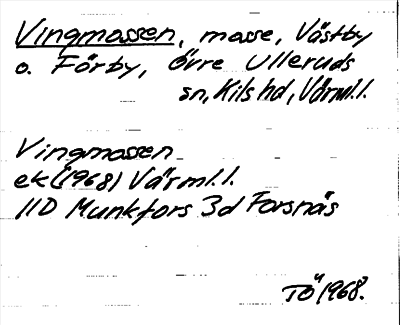 Vingmossen, mosse, Västby
o. Förby, Övre Ulleruds
sn, Kils hd, Värml.l.
Vingmossen
ek (1968) Värml.l.
11D Munkfors 3d Forsnäs
TÖ 1968.